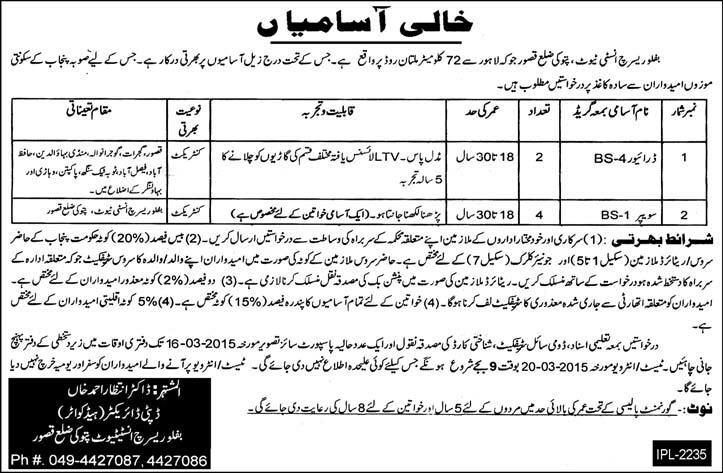 خالی آسامیاں
بفلوریسرچ انسٹی ٹیوٹ، پتوکی ضلع قصور جو کہ لاہور سے 72 کلومیٹر ملتان روڈ پر واقع ہے۔ جس کے تحت درج زیل آسامیوں پر بھرتی درکار ہے۔ جس کے لیے صوبہ پنجاب کے سکونتی
موزوں امیدواران سے سادہ کاغذ پر درخواستیں مطلوب ہیں۔
نمبر شمار نام آسامی بمعہ گریڈ تعداد عمر کی حد قابلیت و تجربہ نوعیت بھرتی مقام تعیناتی
1 ڈرائیور BS-4 2 18 تا 30 سال مڈل پاس۔ LTV لائسنس یافتہ مختلف قسم کی گاڑیوں کو چلانے کا 5 سالہ تجربہ کنٹریکٹ قصور، گجرات، گوجرانوالہ، منڈی بہاؤالدین، حافظ آباد، فیصل آباد، ٹوبہ ٹیک سنگھ، پاکپتن، وہاڑی اور بہاولنگر کے اضلاع میں۔
2 سویپر BS-1 4 18 تا 30 سال پڑھنا لکھنا جانتا ہو۔ (ایک آسامی خواتین کے لئے مخصوص ہے) کنٹریکٹ بفلوریسرچ انسٹی ٹیوٹ، پتوکی ضلع قصور
شرائط بھرتی: (1) سرکاری اور خود مختار اداروں کے ملازمین اپنے متعلقہ محکمہ کے سربراہ کی وساطت سے درخواستیں ارسال کریں۔ (2) بیس فیصد (20%) کوٹہ حکومت پنجاب کے حاضر
سروس/ریٹائرڈ ملازمین (سکیل 1 تا 5) اور جونیئر کلرک (سکیل 7) کے لئے مختص ہے۔ حاضر سروس ملازمین کے کوٹہ کی صورت میں امیدواران اپنے والد/والدہ کا سروس سرٹیفکیٹ جو کہ متعلقہ ادارہ کے
سربراہ کا دستخط شدہ ہو درخواست کے ساتھ منسلک کریں۔ ریٹائرڈ ملازمین کی صورت میں پنشن بک کی مصدقہ نقل منسلک کرنا لازمی ہے۔ (3) دو فیصد (2%) کوٹہ معذور امیدواران کے لئے مختص ہے۔ معذور
امیدواران کو متعلقہ اتھارٹی سے جاری شدہ معذوری کا سرٹیفکیٹ لف کرنا ہوگا۔ (4) خواتین کے لئے تمام آسامیوں کا پندرہ فیصد (15%) کوٹہ مختص ہے۔ (4) 5% کوٹہ اقلیتی امیدواران کے لئے مختص ہے۔
درخواستیں بمعہ تعلیمی اسناد، ڈومی سائل سرٹیفکیٹ، شناختی کارڈ کی مصدقہ نقول اور ایک عدد حالیہ پاسپورٹ سائز تصویر مورخہ 16-03-2015 تک دفتری اوقات میں زیر دستخطی کے دفتر پہنچ
جانی چاہئیں۔ ٹیسٹ/انٹرویو مورخہ 20-03-2015 بوقت 9 بجے شروع ہونگے جس کیلئے کوئی علیحدہ اطلاع نہیں دی جائے گی۔ ٹیسٹ/انٹرویو پر آنے والے امیدواران کو سفر اور یومیہ خرچ نہیں دیا
جائے گا۔
نوٹ:۔ گورنمنٹ پالیسی کے تحت عمر کی بالائی حد میں مردوں کے لئے 5 سال اور خواتین کے لئے 8 سال کی رعایت دی جائے گی۔
المشتہر: ڈاکٹر انتظار احمد خاں
ڈپٹی ڈائریکٹر (ہیڈکواٹر)
بفلوریسرچ انسٹیٹیوٹ پتوکی ضلع قصور
Ph #. 049-4427087, 4427086
IPL-2235